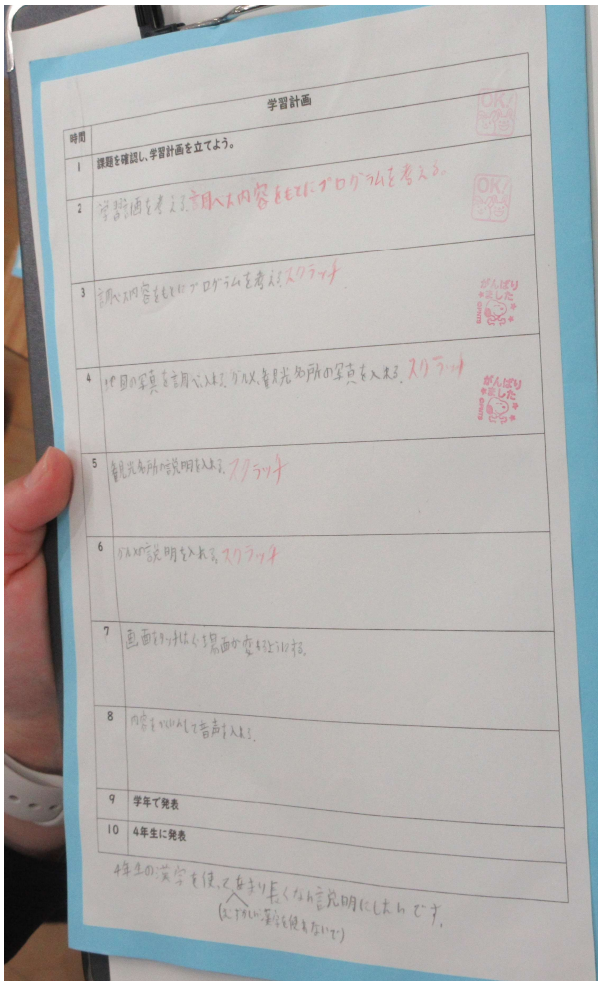 学習計画
時間
1 課題を確認し、学習計画を立てよう。
OK!
2 学習計画を考える。調べた内容をもとにプログラムを考える。
OK!
3 調べた内容をもとにプログラムを考える スクラッチ
がんばりました
4 地図の写真を調べ、入れる。グルメ、観光名所の写真を入れる。スクラッチ
がんばりました
5 観光名所の説明を入れる。スクラッチ
6 グルメの説明を入れる。スクラッチ
7 画面をタッチすると場面が変わるようにする。
8 内容をかくにんして音声を入れる。
9 学年で発表
10 4年生に発表
4年生の漢字を使ってあまり長くない説明にしたいです。
(むずかしい漢字を使わないで)